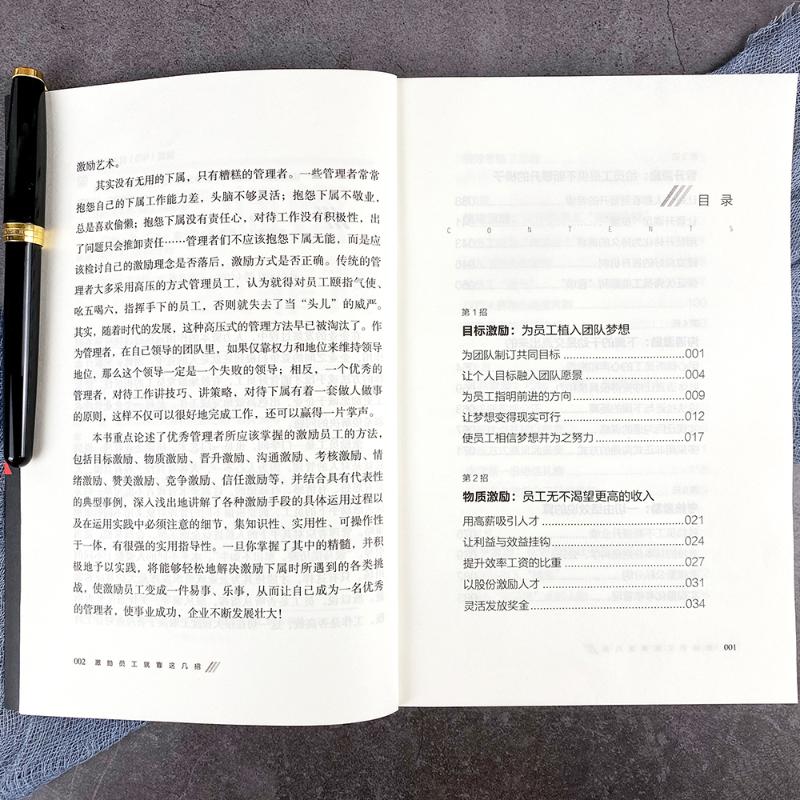 激励艺术。
其实没有无用的下属，只有糟糕的管理者。一些管理者常常
抱怨自己的下属工作能力差，头脑不够灵活；抱怨下属不敬业，
总是喜欢偷懒；抱怨下属没有责任心，对待工作没有积极性，出
了问题只会推卸责任……管理者们不应该抱怨下属无能，而是应
该检讨自己的激励理念是否落后，激励方式是否正确。传统的管
理者大多采用高压的方式管理员工，认为就得对员工颐指气使、
吆五喝六，指挥手下的员工，否则就失去了当“头儿”的威严。
其实，随着时代的发展，这种高压式的管理方法早已被淘汰了。作
为管理者，在自己领导的团队里，如果仅靠权力和地位来维持领导
地位，那么这个领导一定是一个失败的领导；相反，一个优秀的
管理者，对待工作讲技巧、讲策略，对待下属有着一套做人做事
的原则，这样不仅可以很好地完成工作，还可以赢得一片掌声。
本书重点论述了优秀管理者所应该掌握的激励员工的方法，
包括目标激励、物质激励、晋升激励、沟通激励、考核激励、情
绪激励、赞美激励、竞争激励、信任激励等，并结合具有代表性
的典型事例，深入浅出地讲解了各种激励手段的具体运用过程以
及在运用实践中必须注意的细节，集知识性、实用性、可操作性
于一体，有很强的实用指导性。一旦你掌握了其中的精髓，并积
极地予以实践，将能够轻松地解决激励下属时所遇到的各类挑
战，使激励员工变成一件易事、乐事，从而让自己成为一名优秀
的管理者，使事业成功，企业不断发展壮大！
002 激励员工就靠这几招
目录
CONTENTS
第1招
目标激励：为员工植入团队梦想
为团队制订共同目标……001
让个人目标融入团队愿景……004
为员工指明前进的方向……009
让梦想变得现实可行……012
使员工相信梦想并为之努力……017
第2招
物质激励：员工无不渴望更高的收入
用高薪吸引人才……021
让利益与效益挂钩……024
提升效率工资的比重……027
以股份激励人才……031
灵活发放奖金……034
001